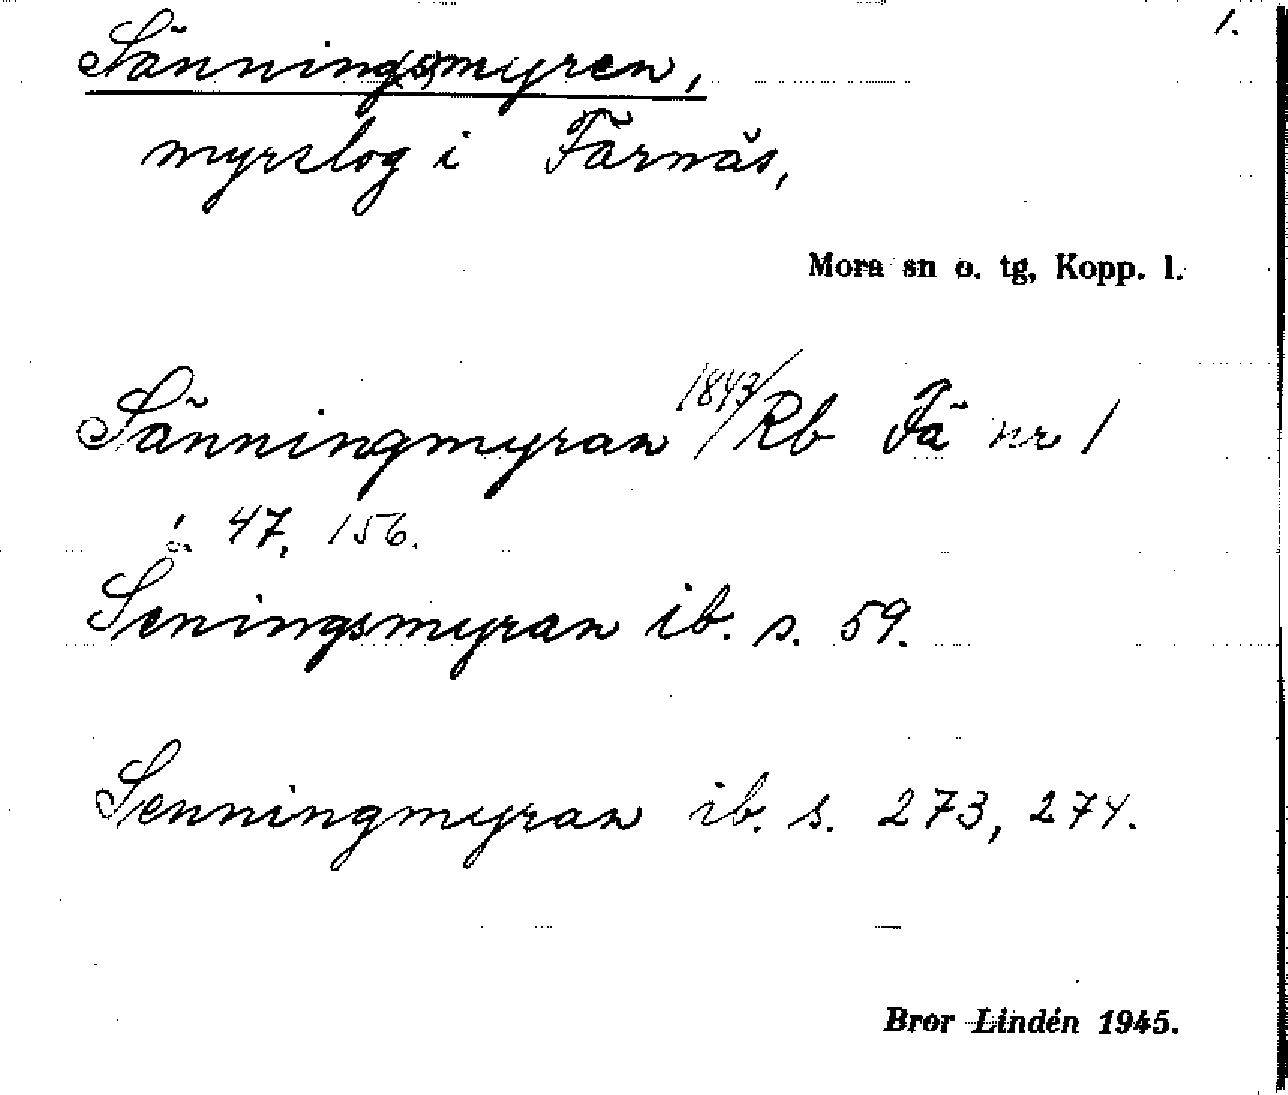 1.
Sänning(s)myren,
myrslog i Färnäs,
Mora sn o. tg, Kopp. l.
Sänningmyran 1843/Rb Fä nr 1
s. 47, 156.
Seningsmyran ib. s. 59.
Senningmyran ib. s. 273, 274.
Bror Lindén 1945.